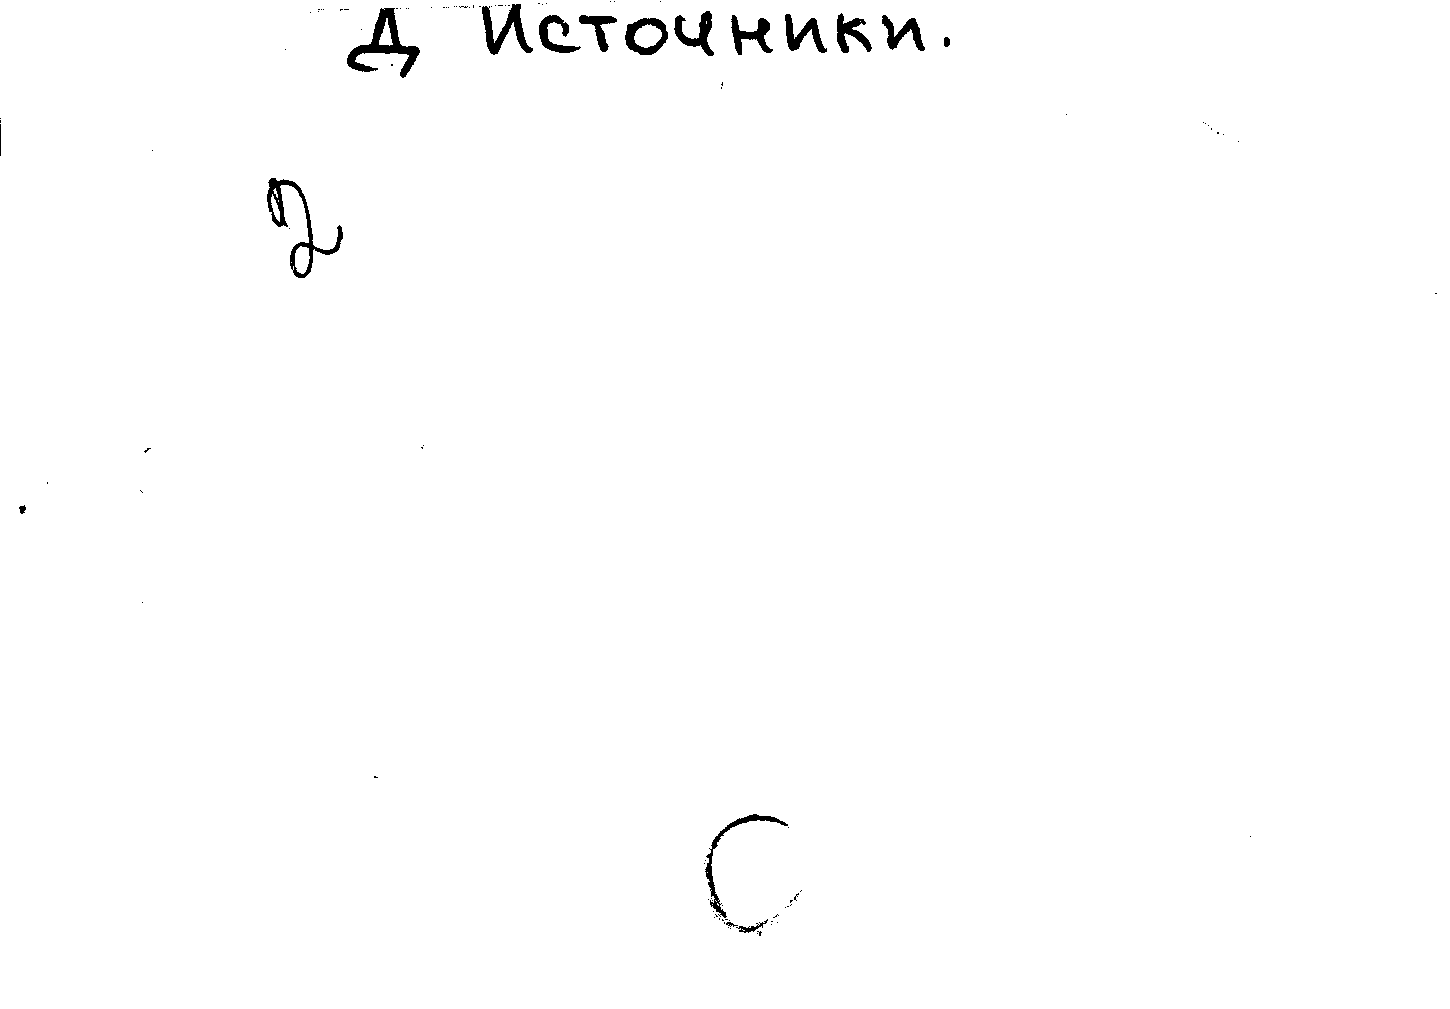 Д Источники.
2
С